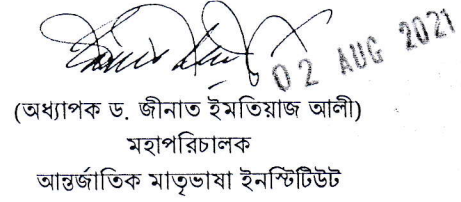 02 AUG 2021
(অধ্যাপক ড. জীনাত ইমতিয়াজ আলী)
মহাপরিচালক
আন্তর্জাতিক মাতৃভাষা ইনস্টিটিউট